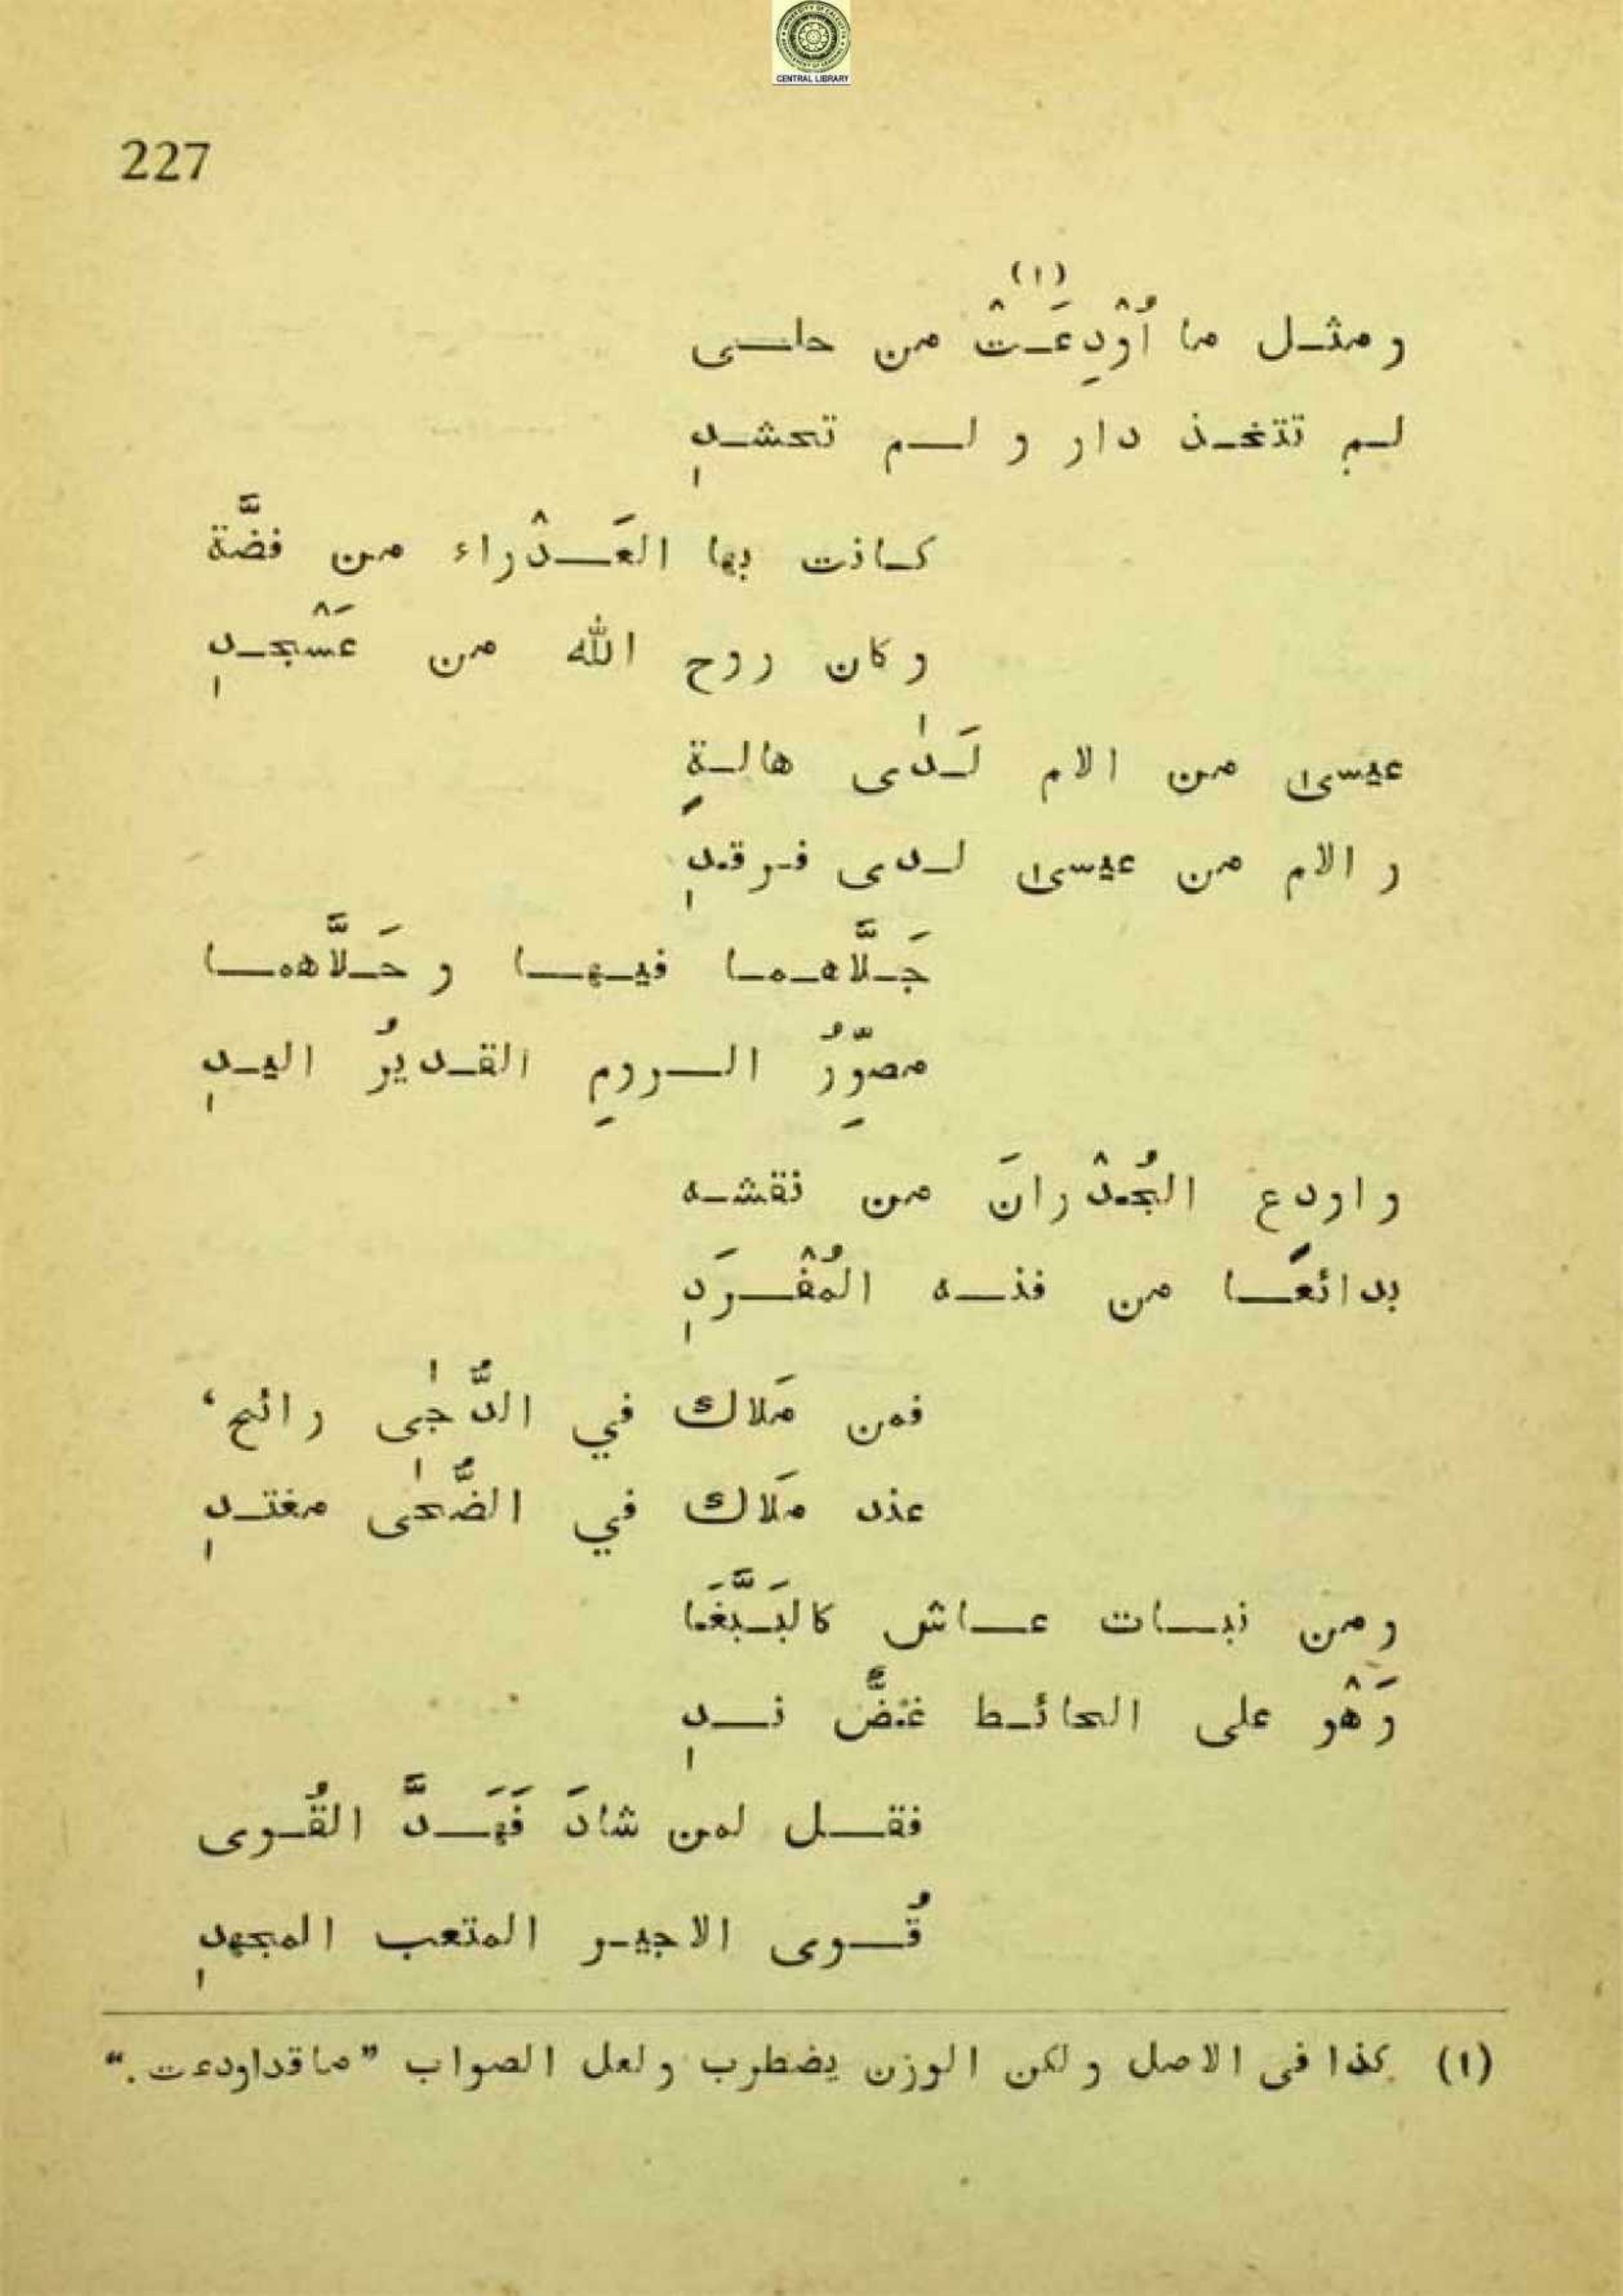 CENTRAL LIBRARY
227
(١)
ومثل ما أُوْدِعَتْ من حلى
لم تتخذ دار و لم تحشدِ
كانت بها العَذْراء من فضَّة
وكان روح الله من عَسْجدِ
عيسى من الام لَدٰى هالةٍ
و الام من عيسى لدى فرقدِ
جَلَّاهما فيها و حَلَّاهما
مصوِّرُ الرومِ القديرُ اليدِ
و اودع الجُدْرانَ من نقشه
بدائعًا من فنه المُفْرَدِ
فمن مَلاك في الدُّجٰى رائح،
عند مَلاك في الضُّحٰى مغتدِ
ومن نبات عاش كالبَبَّغَا
وَهْو على الحائط غضٌّ ندِ
فقل لمن شادَ فَهَدَّ القُوى
قُوى الاجير المتعب المجهدِ
(١) كذا فى الاصل ولكن الوزن يضطرب ولعل الصواب ”ما قد اودعت.“